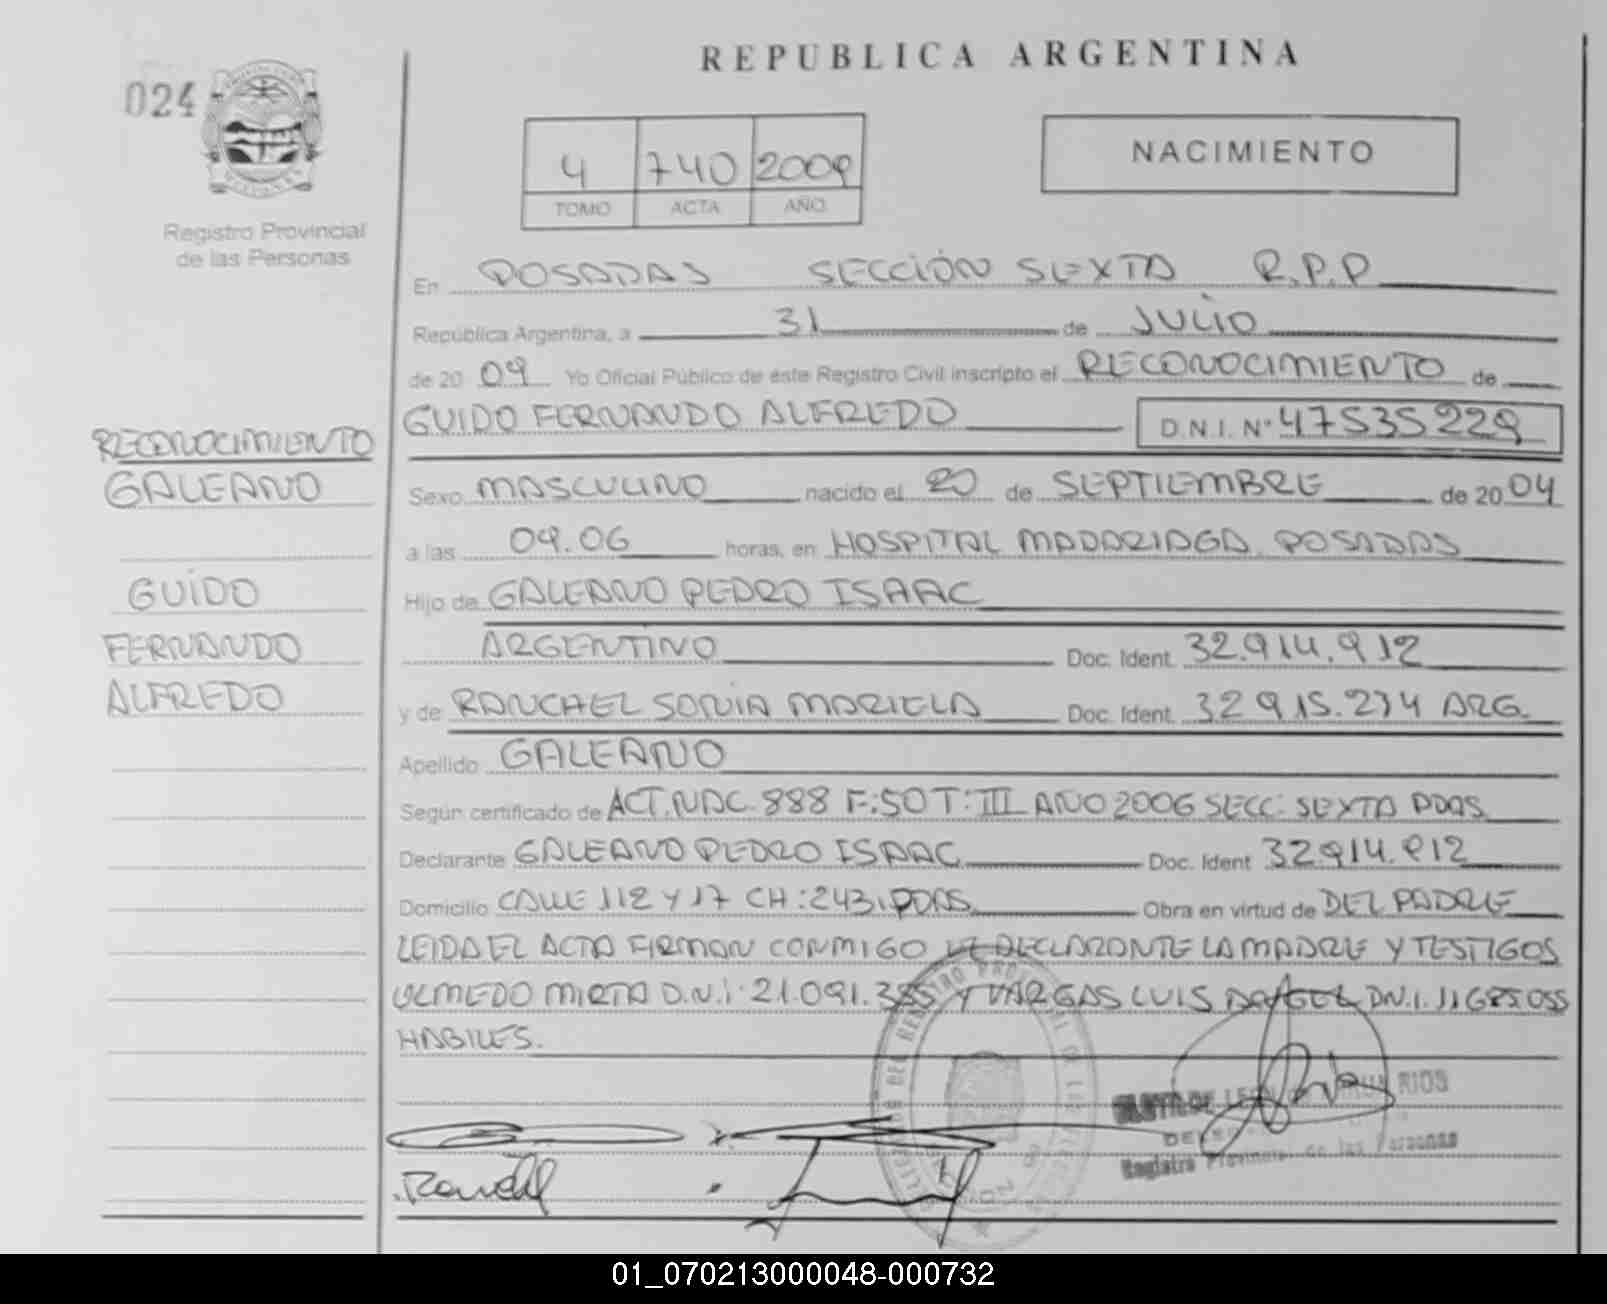 REPUBLICA ARGENTINA
024
NACIMIENTO
4 740 2009
TOMO ACTA AÑO
Registro Provincial
de las Personas
En POSADAS SECCIÓN SEXTA R.P.P
República Argentina, a 31 de JULIO
de 20 09 Yo Oficial Público de este Registro Civil inscripto el RECONOCIMIENTO de
GUIDO FERNANDO ALFREDO D.N.I. N° 47535229
RECONOCIMIENTO
GALEANO
GUIDO
FERNANDO
ALFREDO
Sexo MASCULINO nacido el 20 de SEPTIEMBRE de 20 04
a las 09.06 horas, en HOSPITAL MADARIAGA POSADAS
Hijo de GALEANO PEDRO ISAAC
ARGENTINO Doc. Ident. 32.914.912
y de RANCHEL SONIA MARIELA Doc. Ident. 32 915.274 ARG.
Apellido GALEANO
Según certificado de ACT. NAC. 888 F:50 T:III AÑO 2006 SECC: SEXTA PDAS.
Declarante GALEANO PEDRO ISAAC Doc. Ident. 32.914.912
Domicilio CALLE 112 Y 17 CH:243. PDAS. Obra en virtud de DEL PADRE
LEIDA EL ACTA FIRMAN CONMIGO EL DECLARANTE LA MADRE Y TESTIGOS
OLMEDO MIRTA D.N.I. 21.091.355 Y VARGAS LUIS ANGEL DN.I. 11685.055
HABILES.
RIOS
Registro Provincial de las Personas
01_070213000048-000732